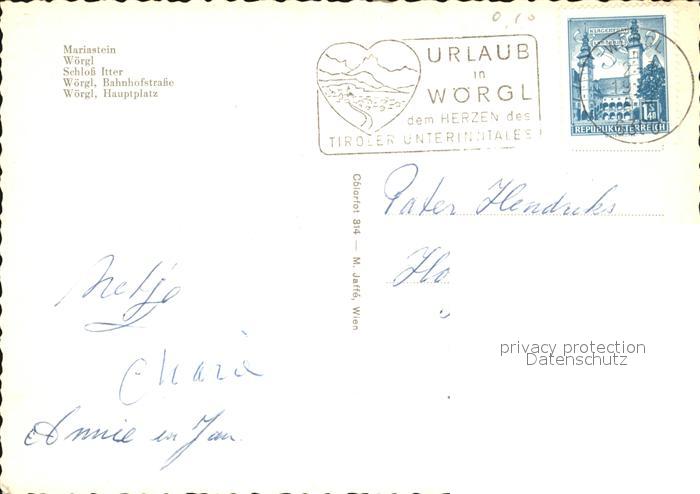 0,10
Mariastein
Wörgl
Schloß Itter
Wörgl, Bahnhofstraße
Wörgl, Hauptplatz
URLAUB
in
WÖRGL
dem HERZEN des
TIROLER UNTERINNTALES!
KLAGENFURT
1S
40
REPUBLIK ÖSTERREICH
Cólorfot 814 — M. Jaffé, Wien
Pater Hendriks
Netje
Maria
Annie en Jan
privacy protection
Datenschutz